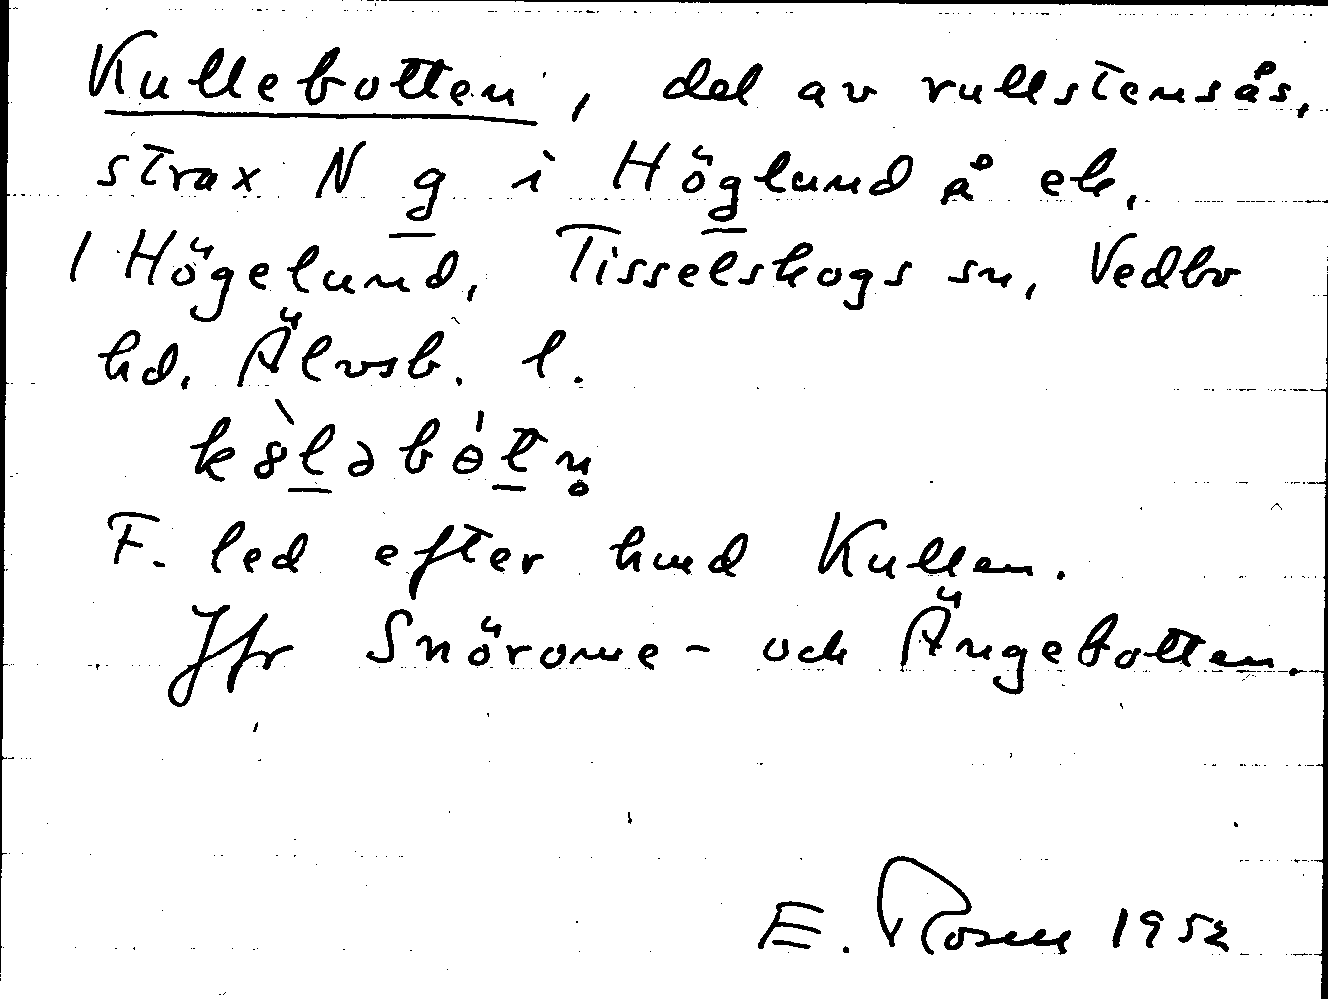 Kullebotten, del av rullstensås,
strax N g i Höglund å ek,
1 Högelund, Tisselskogs sn, Vedbo
hd. Älvsb. l.
k8̀lǝbɵ́tn̥
F. led efter hmd Kullen.
Jfr Snörome- och Ängebotten.
E. Rosen 1952